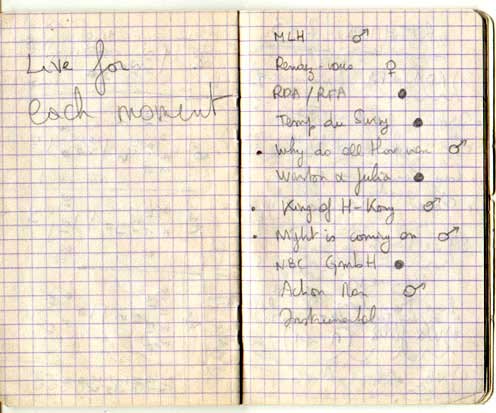 Live for
each moment
MLH ♂
Rendez-vous ♀
RDA/RFA ●
Temp du Suzy ●
• Why do all these men ♂
Winston & Julia ●
• King of H-Kong ♂
• Night is coming on ♂
NBC GmbH ●
Action Man ♂
Instrumental